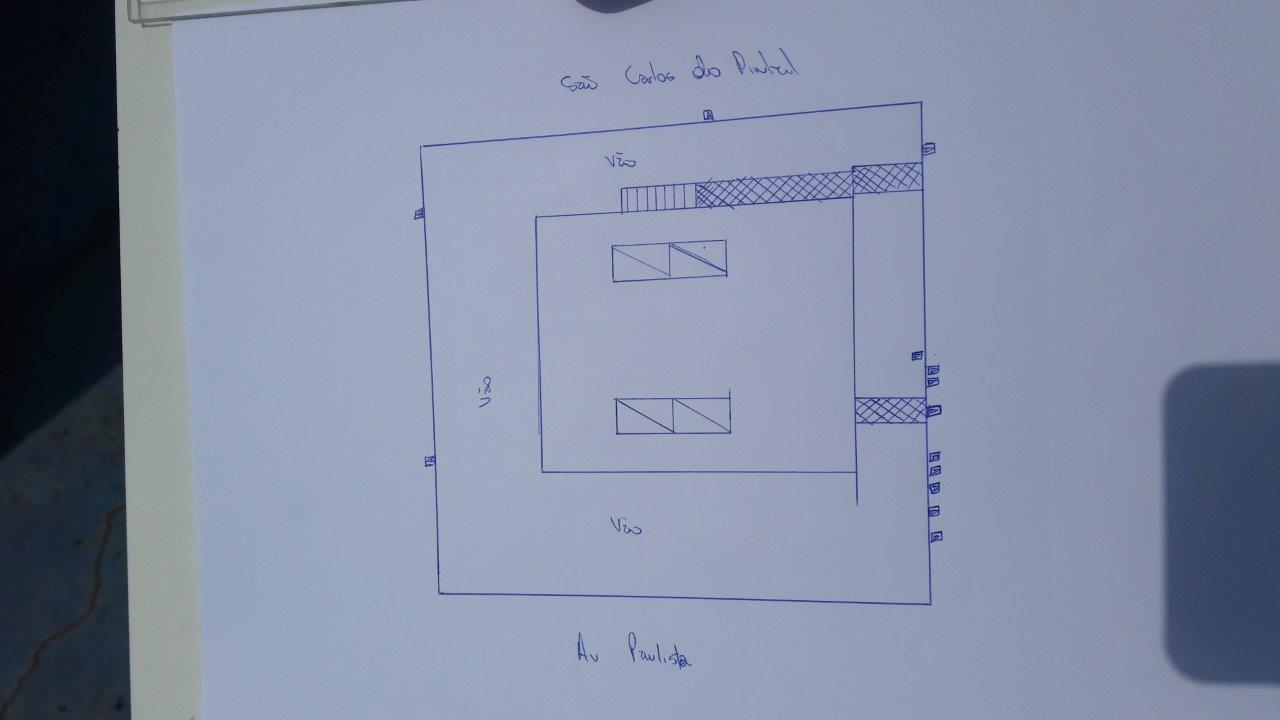 São Carlos do Pinhal
Vão
Vão
Vão
Av Paulista